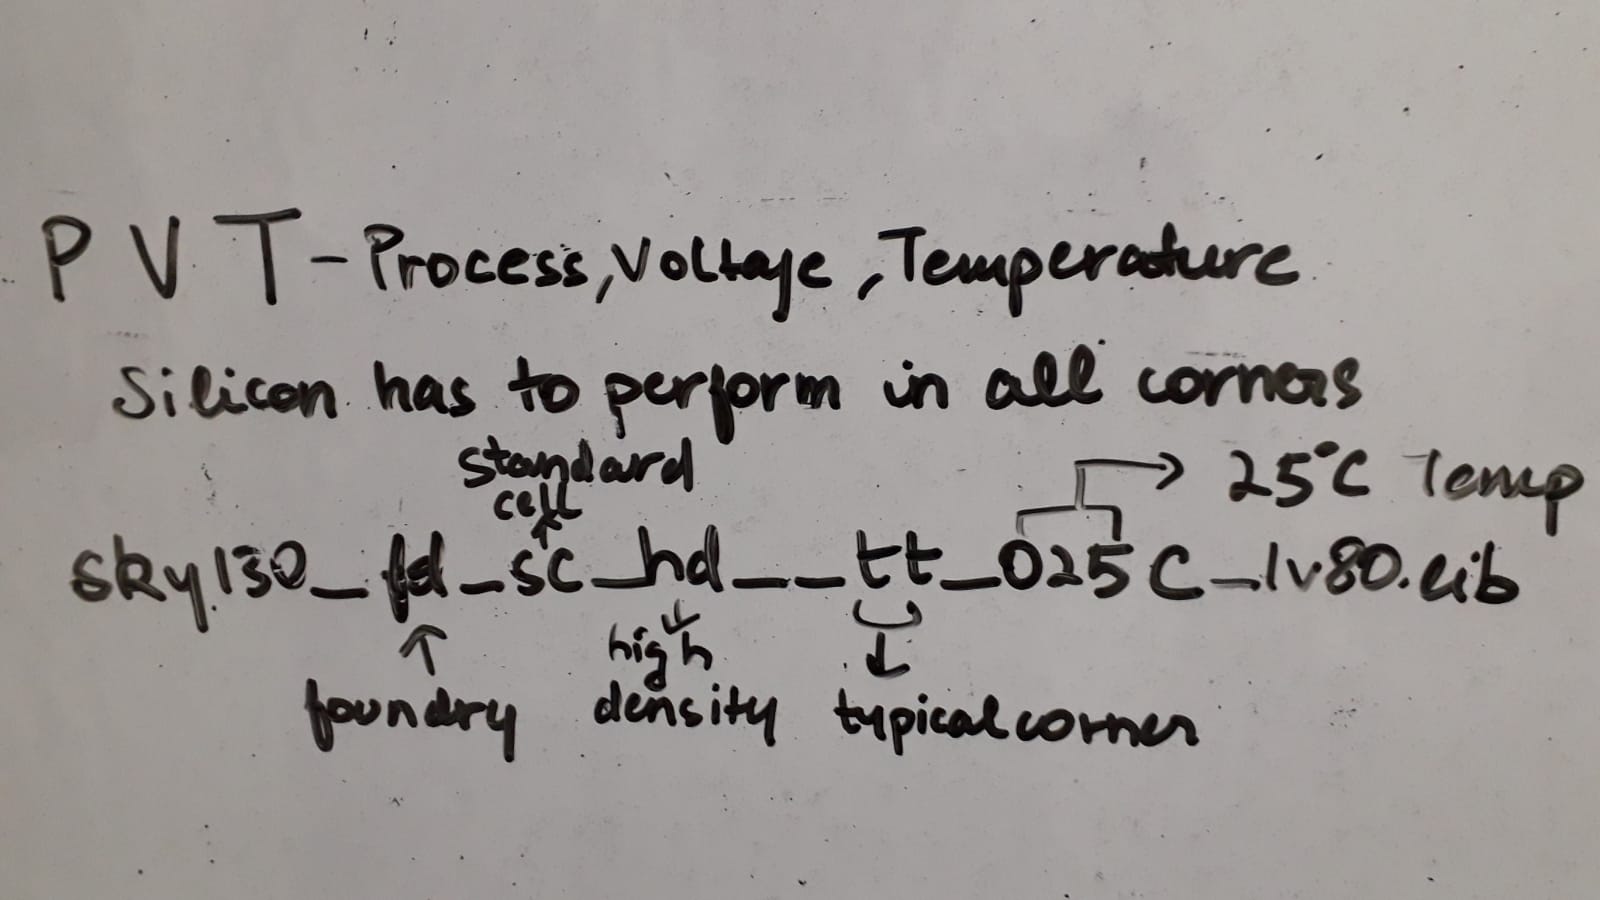 PVT - Process, Voltage, Temperature
Silicon has to perform in all corners
standard
cell
25°C Temp
sky130_fd_sc_hd__tt_025C_1v80.lib
high
foundry density typical corner